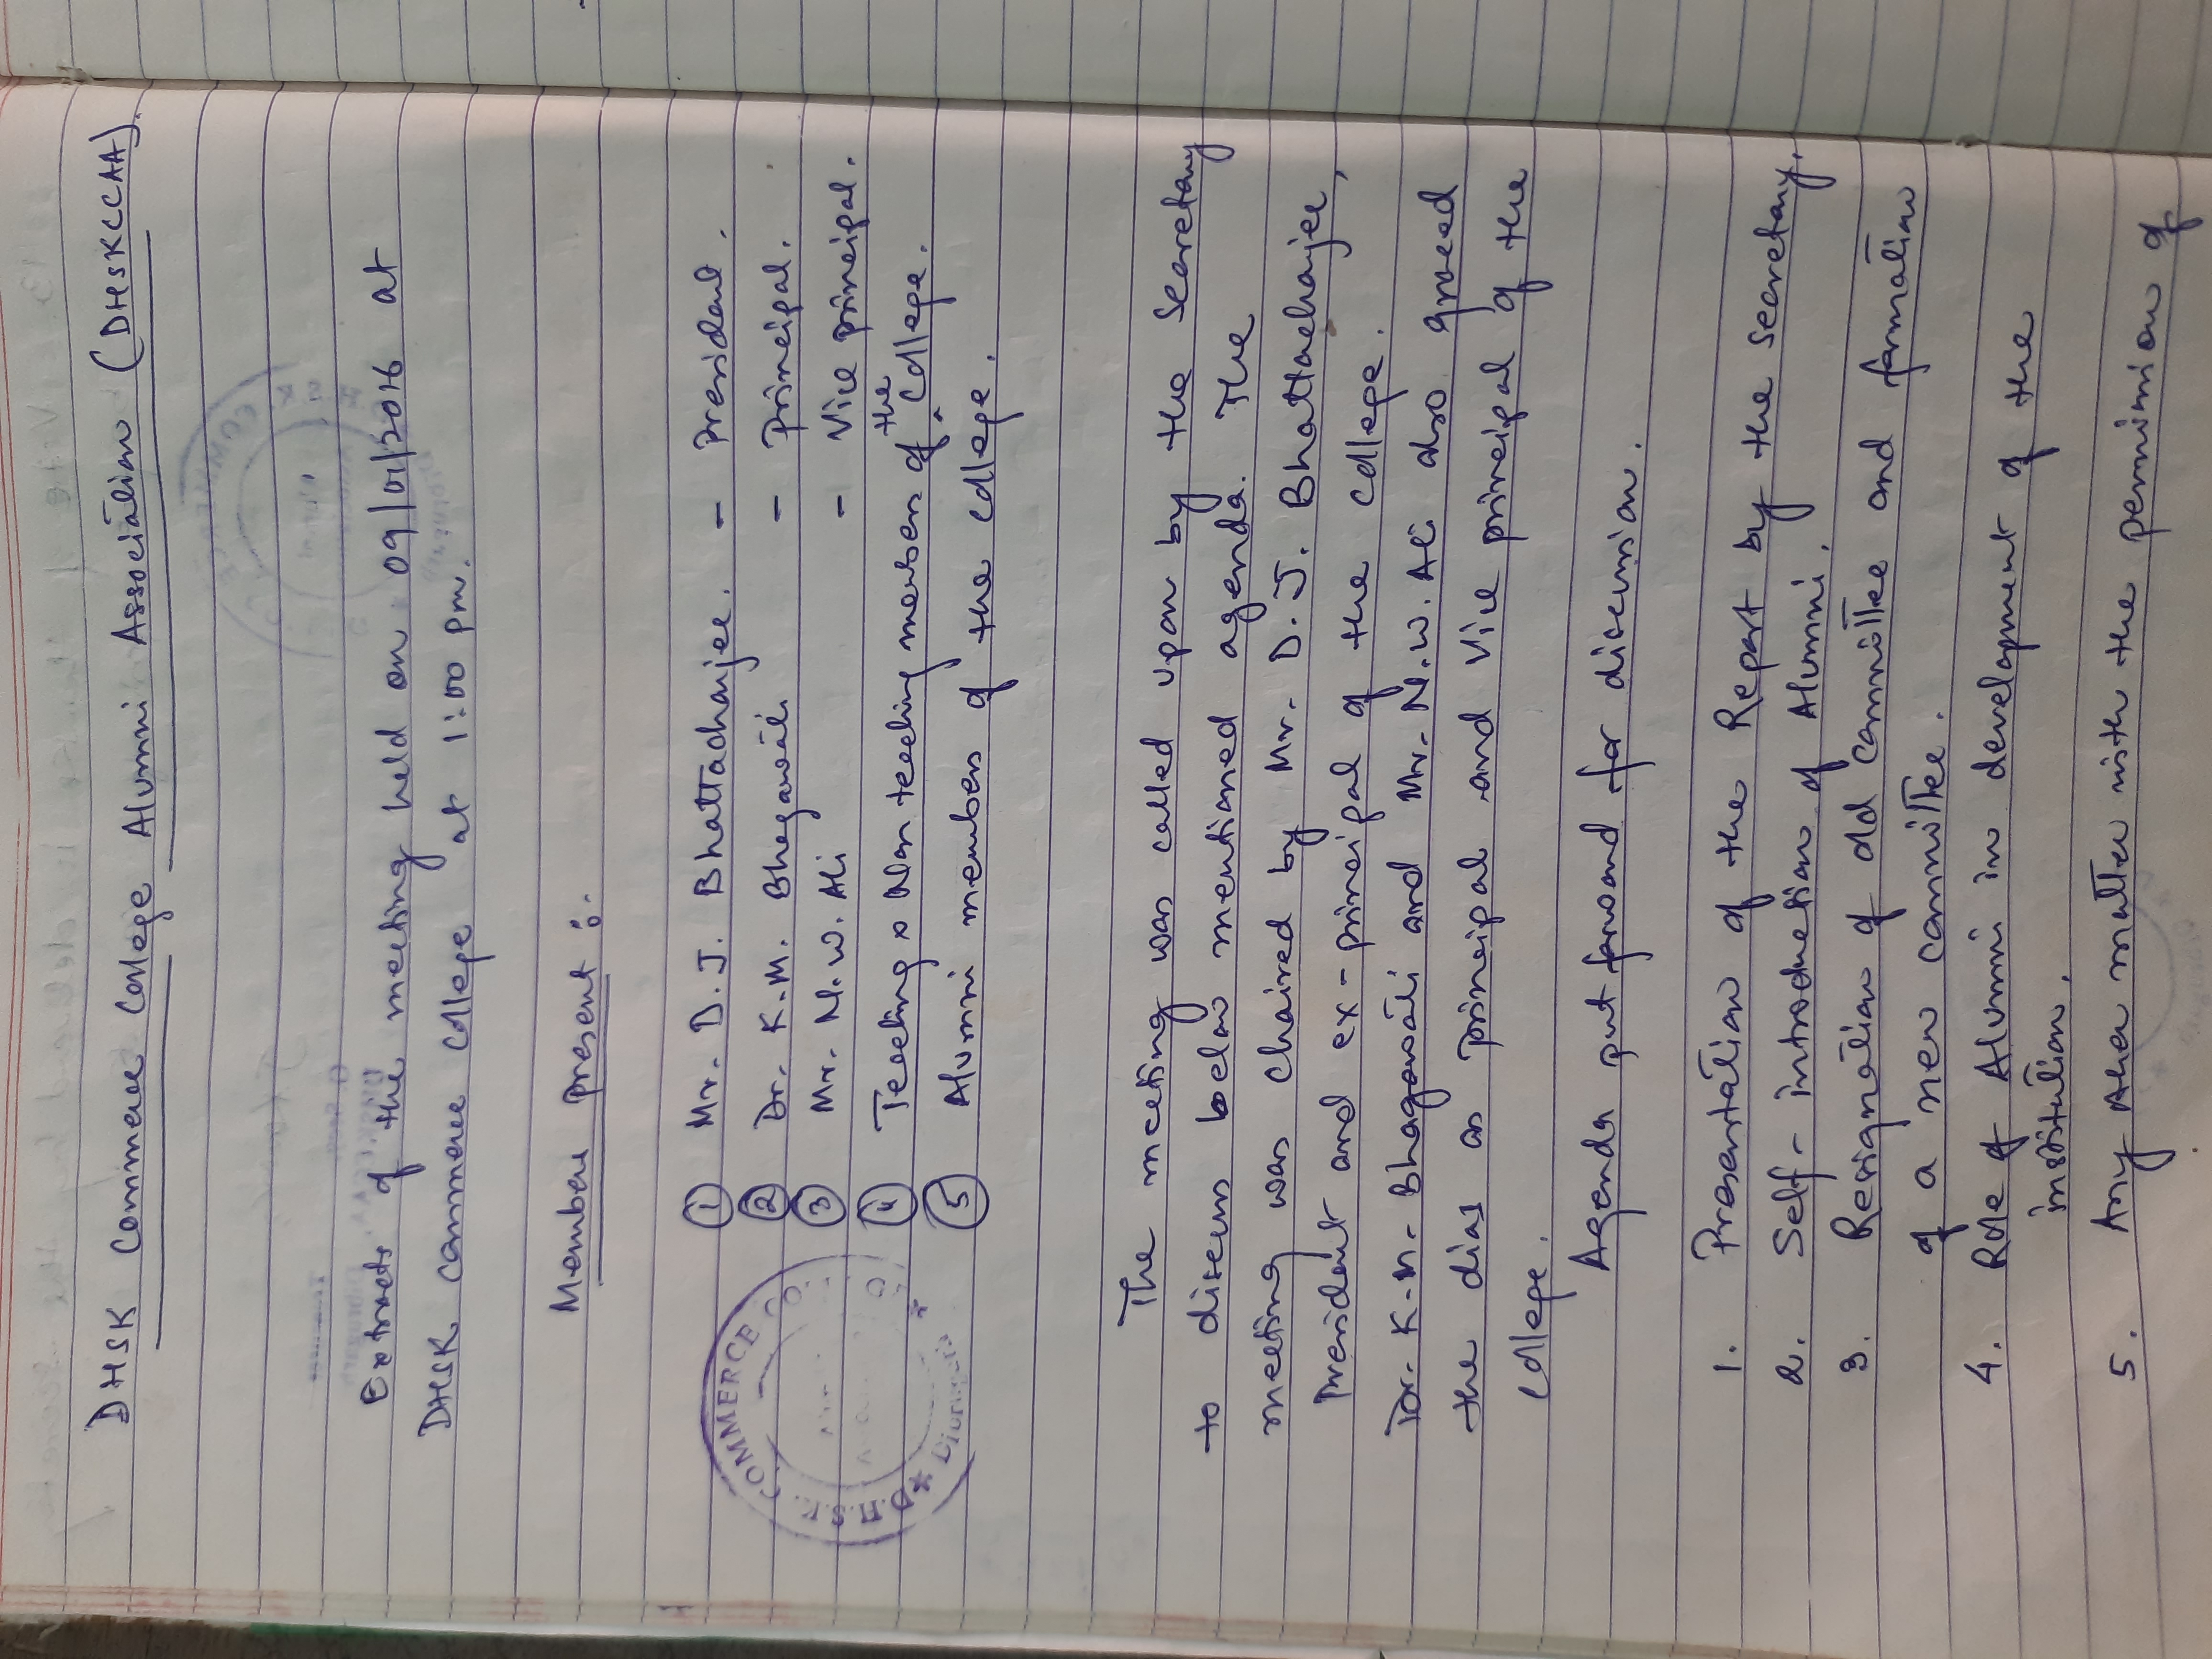 DHSK Commerce College Alumni Association (DHSKCCAA).
Extracts of the meeting held on 09/01/2016 at
DHSK Commerce College at 1:00 pm.
Members Present :-
① Mr. D.J. Bhattacharjee. - President.
② Dr. K.M. Bhagawati - Principal.
③ Mr. N.W. Ali - Vice principal.
④ Teaching & Non teaching members of the College.
⑤ Alumni members of the College.
D.H.S.K. COMMERCE CO
The meeting was called upon by the Secretary
to discuss below mentioned agenda. The
meeting was chaired by Mr. D.J. Bhattacharjee,
President and ex-principal of the College.
Dr. K.M. Bhagawati and Mr. N.W. Ali also graced
the dias as principal and Vice principal of the
College.
Agenda put forward for discussion.
1. Presentation of the Report by the Secretary.
2. Self-introduction of Alumni.
3. Resignation of old committee and formation
of a new committee.
4. Role of Alumni in development of the
institution.
5. Any other matter with the permission of